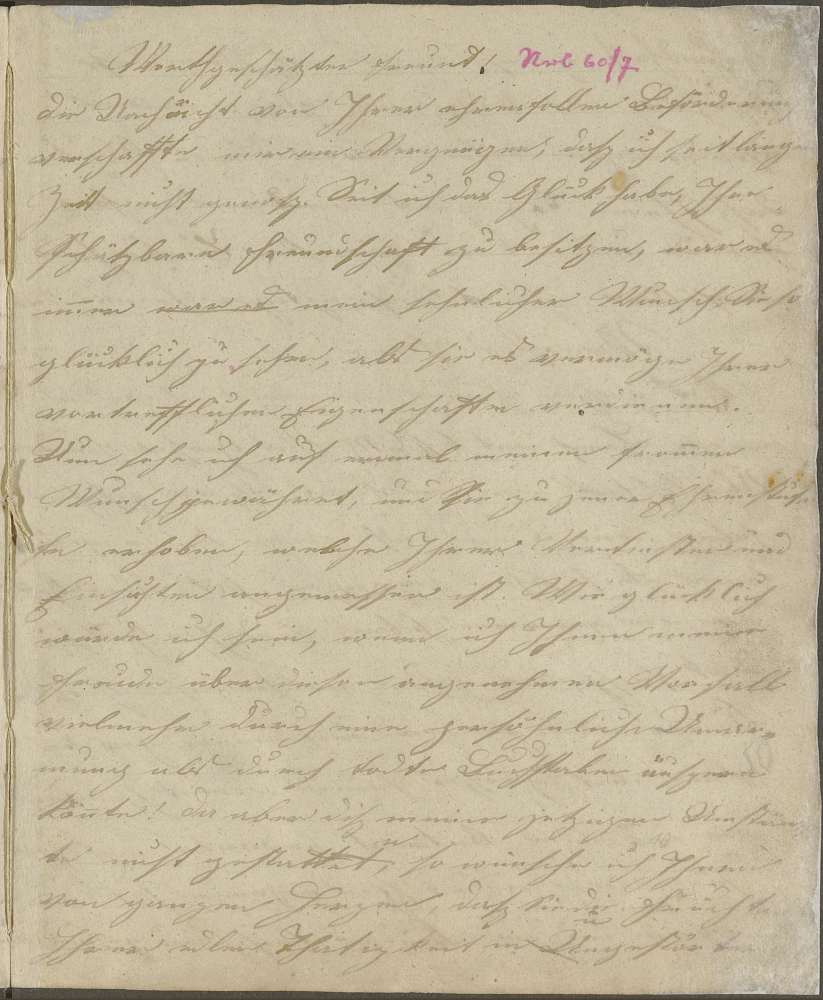 Werthgeschätzter Freund! Nrb 60/7
die Nachricht von Ihrer ehrenvollen Beförderung
verschaffte mir ein Vergnügen, dasz ich seit langer
Zeit nicht genosz. Seit ich das Glück habe, Ihre
Schätzbare Freundschaft zu besitzen, war es
immer war es mein sehnlicher Wunsch, Sie so
glücklich zu sehen, als sie es vermöge Ihrer
vortrefflichen Eigenschaften verdienen.
Nun sehe ich auf einmal meinen frommen
Wunsch gewähret, und Sie zu jener Ehrenstuf-
fe erhoben, welche Ihren Verdiensten und
Einsichten angemessen ist. Wie glücklich
würde ich sein, wenn ich Ihnen meine
Freude über diesen angenehmen Vorfall
vielmehr durch eine persöhnliche Umar-
mung als durch todte Buchstaben äuszern
könnte! da aber disz meine jetzigen Umstän-
de nicht gestatten, so wünsche ich Ihnen
von ganzen Herzen, dasz Sie die Früchte
Ihrer edlen Thätigkeit in